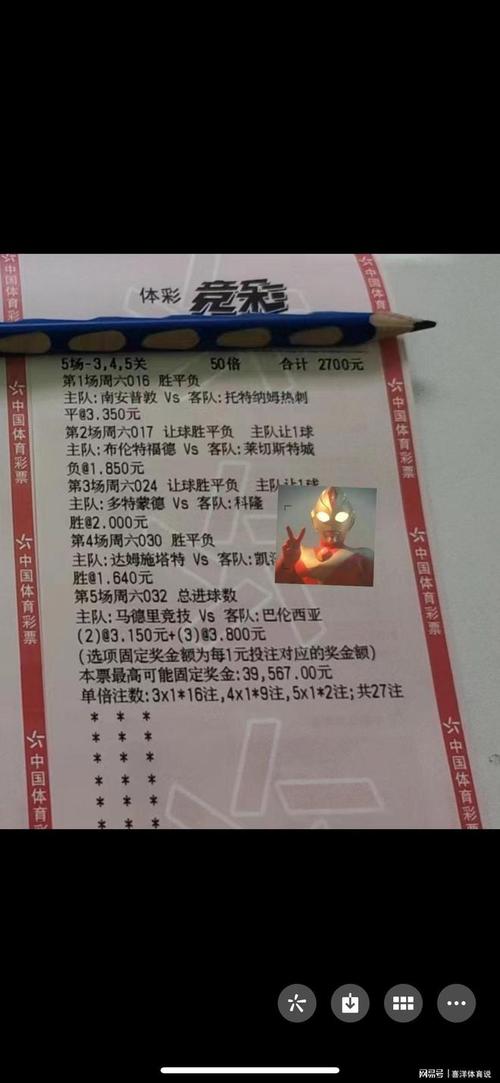 体彩 竞彩
5场-3,4,5关 50倍 合计 2700元
第1场周六016 胜平负
主队:南安普敦 Vs 客队:托特纳姆热刺
平@3.350元
第2场周六017 让球胜平负 主队让1球
主队:布伦特福德 Vs 客队:莱切斯特城
负@1.850元
第3场周六024 让球胜平负 主队让1球
主队:多特蒙德 Vs 客队:科隆
胜@2.000元
第4场周六030 胜平负
主队:达姆施塔特 Vs 客队:凯
胜@1.640元
第5场周六032 总进球数
主队:马德里竞技 Vs 客队:巴伦西亚
(2)@3.150元+(3)@3.800元
(选项固定奖金额为每1元投注对应的奖金额)
本票最高可能固定奖金:39,567.00元
单倍注数:3x1*16注,4x1*9注,5x1*2注;共27注
* * *
* * *
* * *
* * *
* * *
* * *
中国体育彩票
中国体育彩票
中国体育彩票
中国体育彩票
中国体育彩票
中国体育彩票
中国体育彩票
中国体育彩票
网易号 | 喜洋体育说